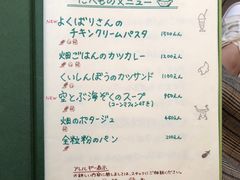 たべものメニュー
NEW よくばりさんの
チキンクリームパスタ 1500えん
畑ごはんのカツカレー 1200えん
くいしんぼうのカツサンド 1100えん
NEW 空とぶ海ぞくのスープ 950えん
(コーンマフィン付き)
畑のポタージュ 400えん
全粒粉のパン 200えん
アレルギー表示